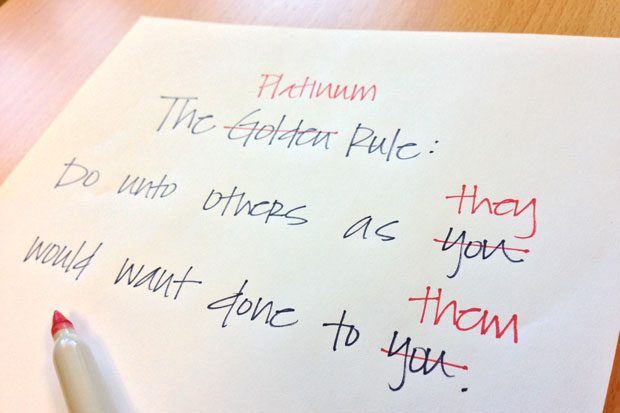 Platinum
The Golden Rule:
they
Do unto others as you
them
would want done to you.